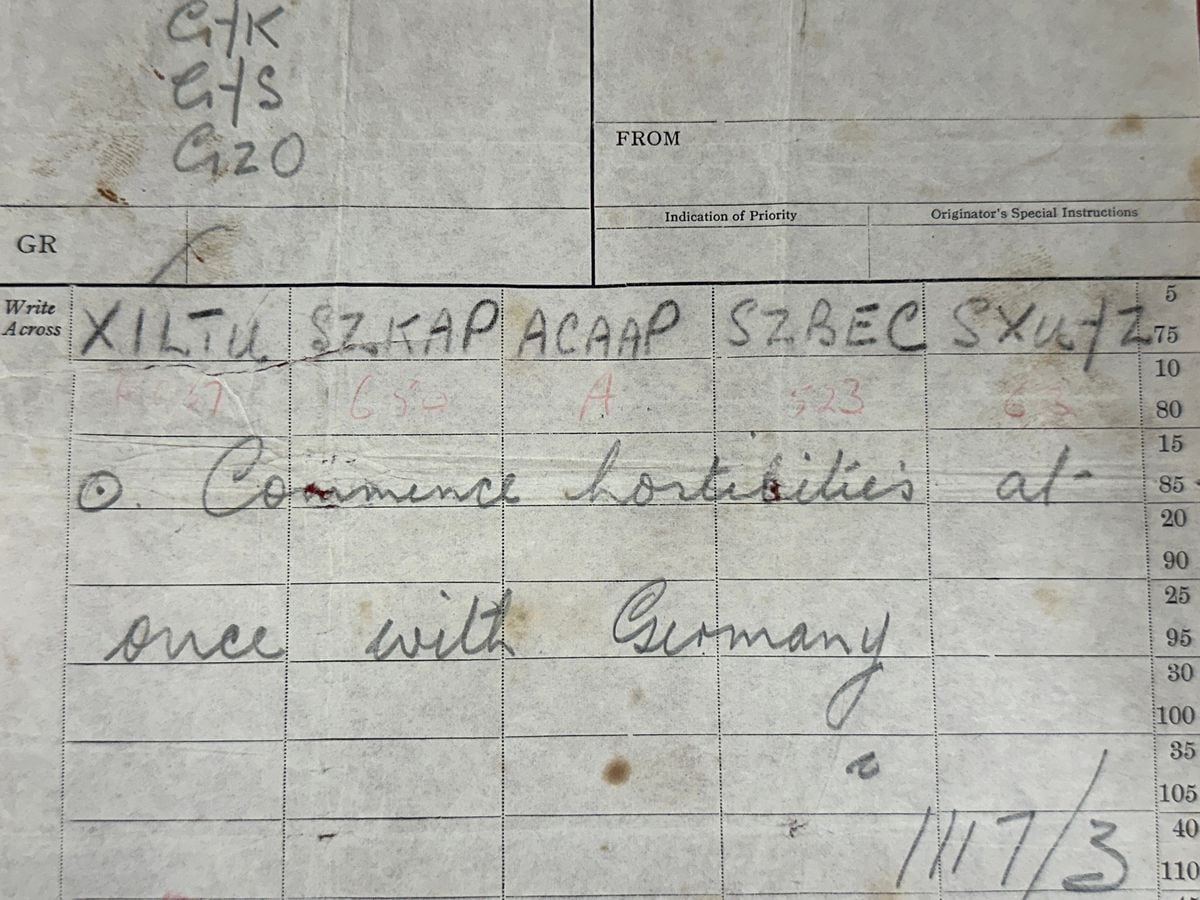 G/K
G/S
GZO
FROM
Indication of Priority Originator's Special Instructions
GR
Write Across XILTU SZKAP ACAAP SZBEC SXU/Z 5 75
650 A 523 63 10 80
⊙. Commence hostilities at 15 85
20 90
once with Germany 25 95
30 100
35 105
1117/3 40 110